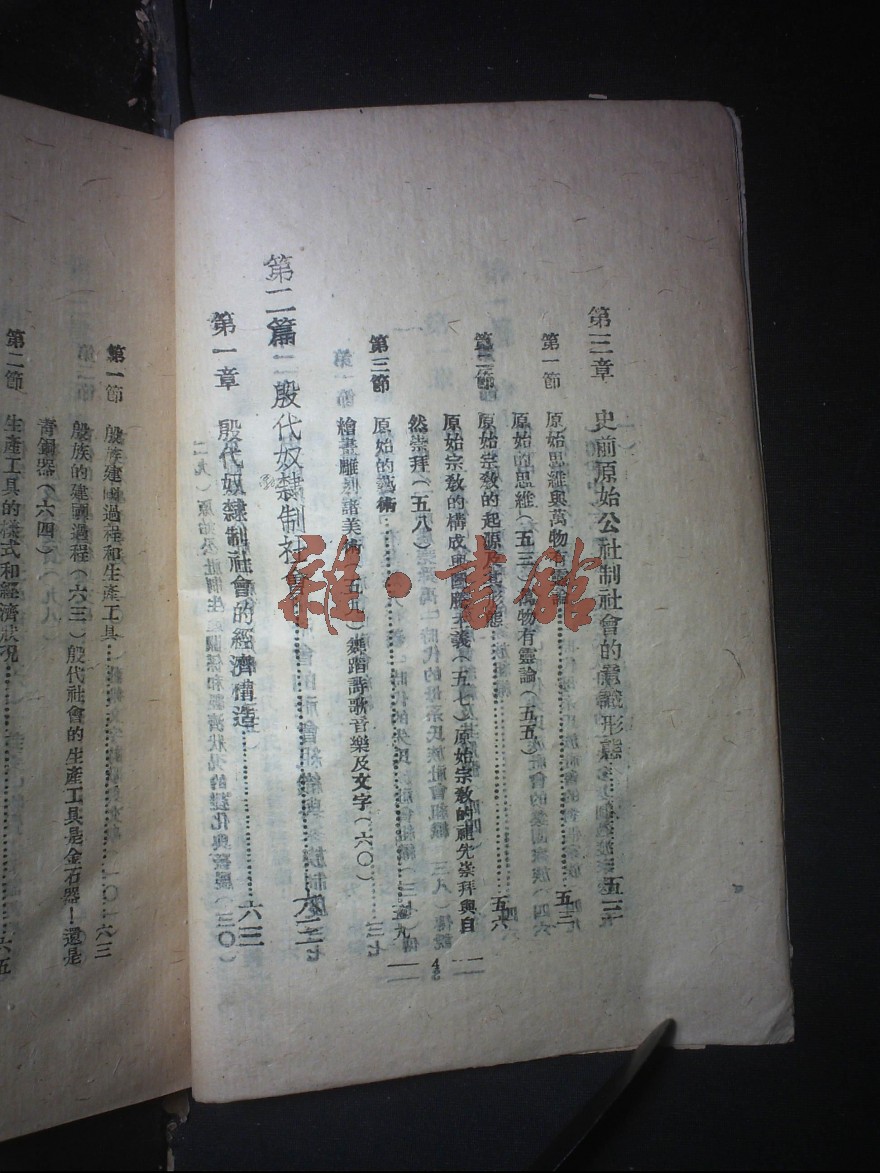 第三章 史前原始公社制社會的意識形態 五三
第一節 原始思維與萬物有靈論 五三
原始的思維(五三)萬物有靈論(五五)
第二節 原始宗教的起源及其形態 五六
原始宗教的構成與圖騰主義(五七)原始宗教的祖先崇拜與自
然崇拜(五八)
第三節 原始的藝術
繪畫雕刻諸美術(五九)舞蹈詩歌音樂及文字(六〇)
第二篇 殷代奴隸制社會 六三
第一章 殷代奴隸制社會的經濟構造 六三
4
第一節 殷族建國過程和生產工具 六三
殷族的建國過程(六三)殷代社會的生產工具是金石器!還是
青銅器(六四)
第二節 生產工具的樣式和經濟狀況 六五
雜·書館